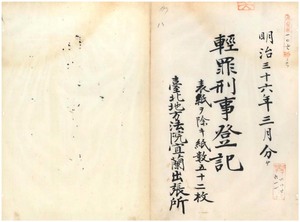 明治三十六年三月分
輕罪刑事登記
表紙ヲ除キ紙數五十二枚
臺北地方法院宜蘭出張所